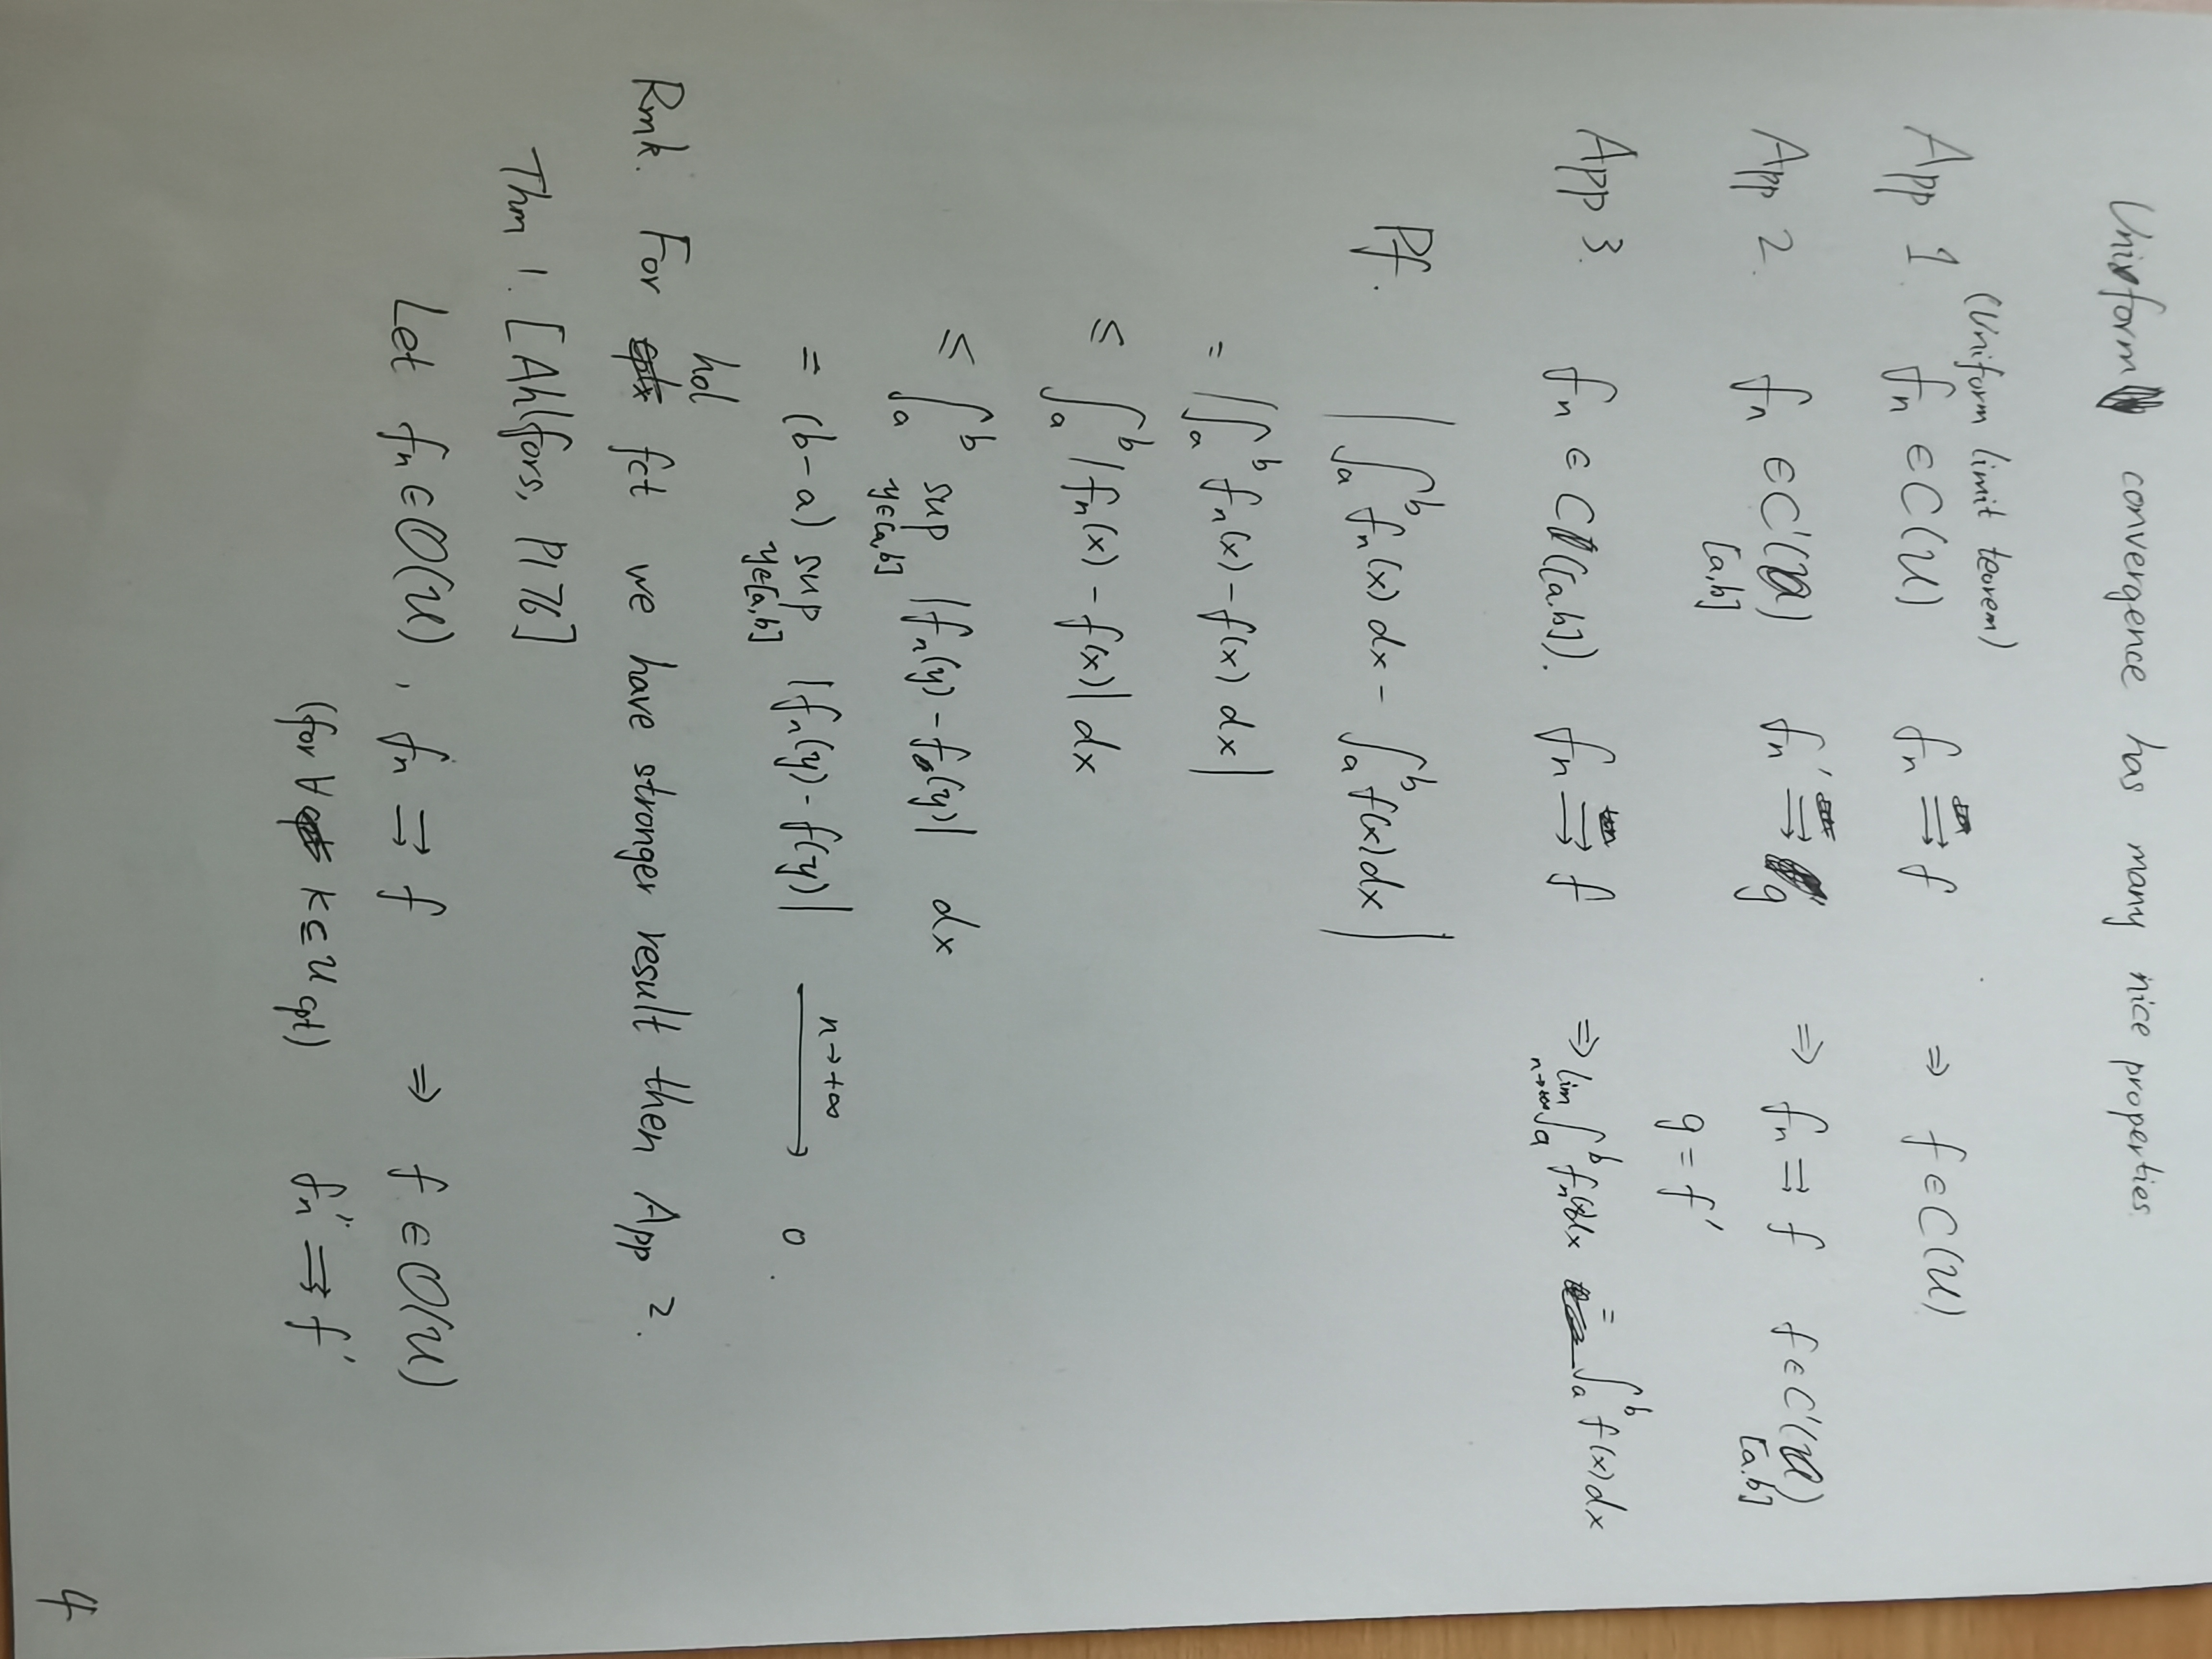 Uniform convergence has many nice properties.
(Uniform limit teorem)
App 1. fn ∈ C(U) fn ⇉ f ⇒ f ∈ C(U)
App 2. fn ∈ C'( ) fn' ⇉ g ⇒ fn ⇉ f f ∈ C'( )
[a,b] [a,b]
g = f'
App 3. fn ∈ C([a,b]). fn ⇉ f ⇒ lim n→+∞ ∫_a^b fn(x)dx = ∫_a^b f(x)dx
Pf. | ∫_a^b fn(x) dx - ∫_a^b f(x)dx |
= | ∫_a^b fn(x) - f(x) dx |
≤ ∫_a^b |fn(x) - f(x)| dx
≤ ∫_a^b sup y∈[a,b] |fn(y) - f(y)| dx
= (b-a) sup y∈[a,b] |fn(y) - f(y)| n→+∞ ⟶ 0.
Rmk. For hol fct we have stronger result then App 2.
Thm 1. [Ahlfors, P176]
Let fn ∈ O(U), fn ⇉ f ⇒ f ∈ O(U)
(for ∀ K ⊆ U cpt) fn' ⇉ f'
4